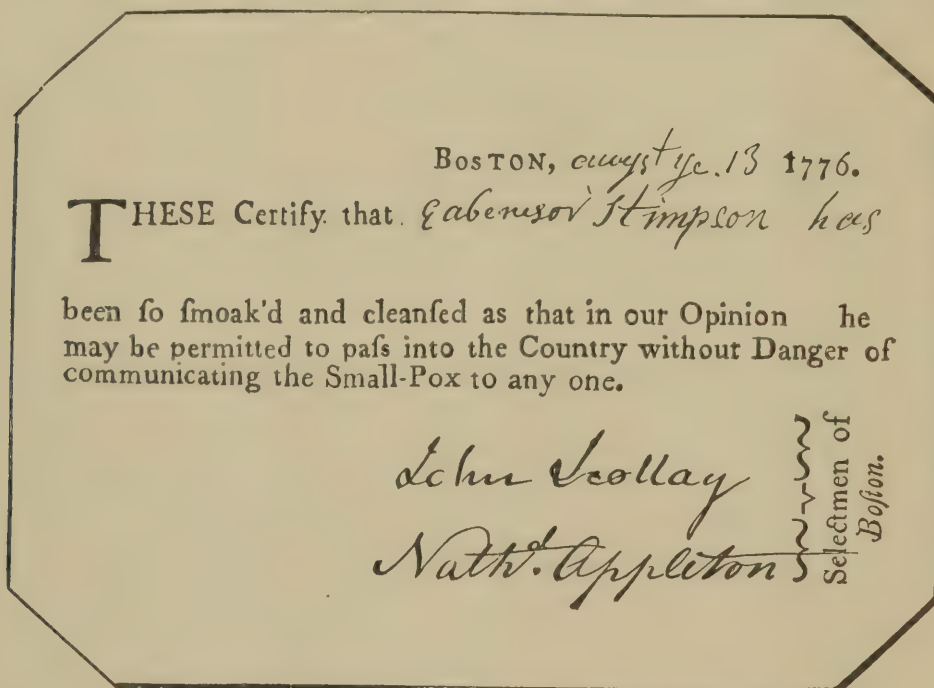 BOSTON, augst ye. 13 1776.
THESE Certify that Eabenesor Stimpson has
been ſo ſmoak'd and cleanſed as that in our Opinion he
may be permitted to paſs into the Country without Danger of
communicating the Small-Pox to any one.
John Scollay
Nathd. Appleton
Selectmen of
Boſton.